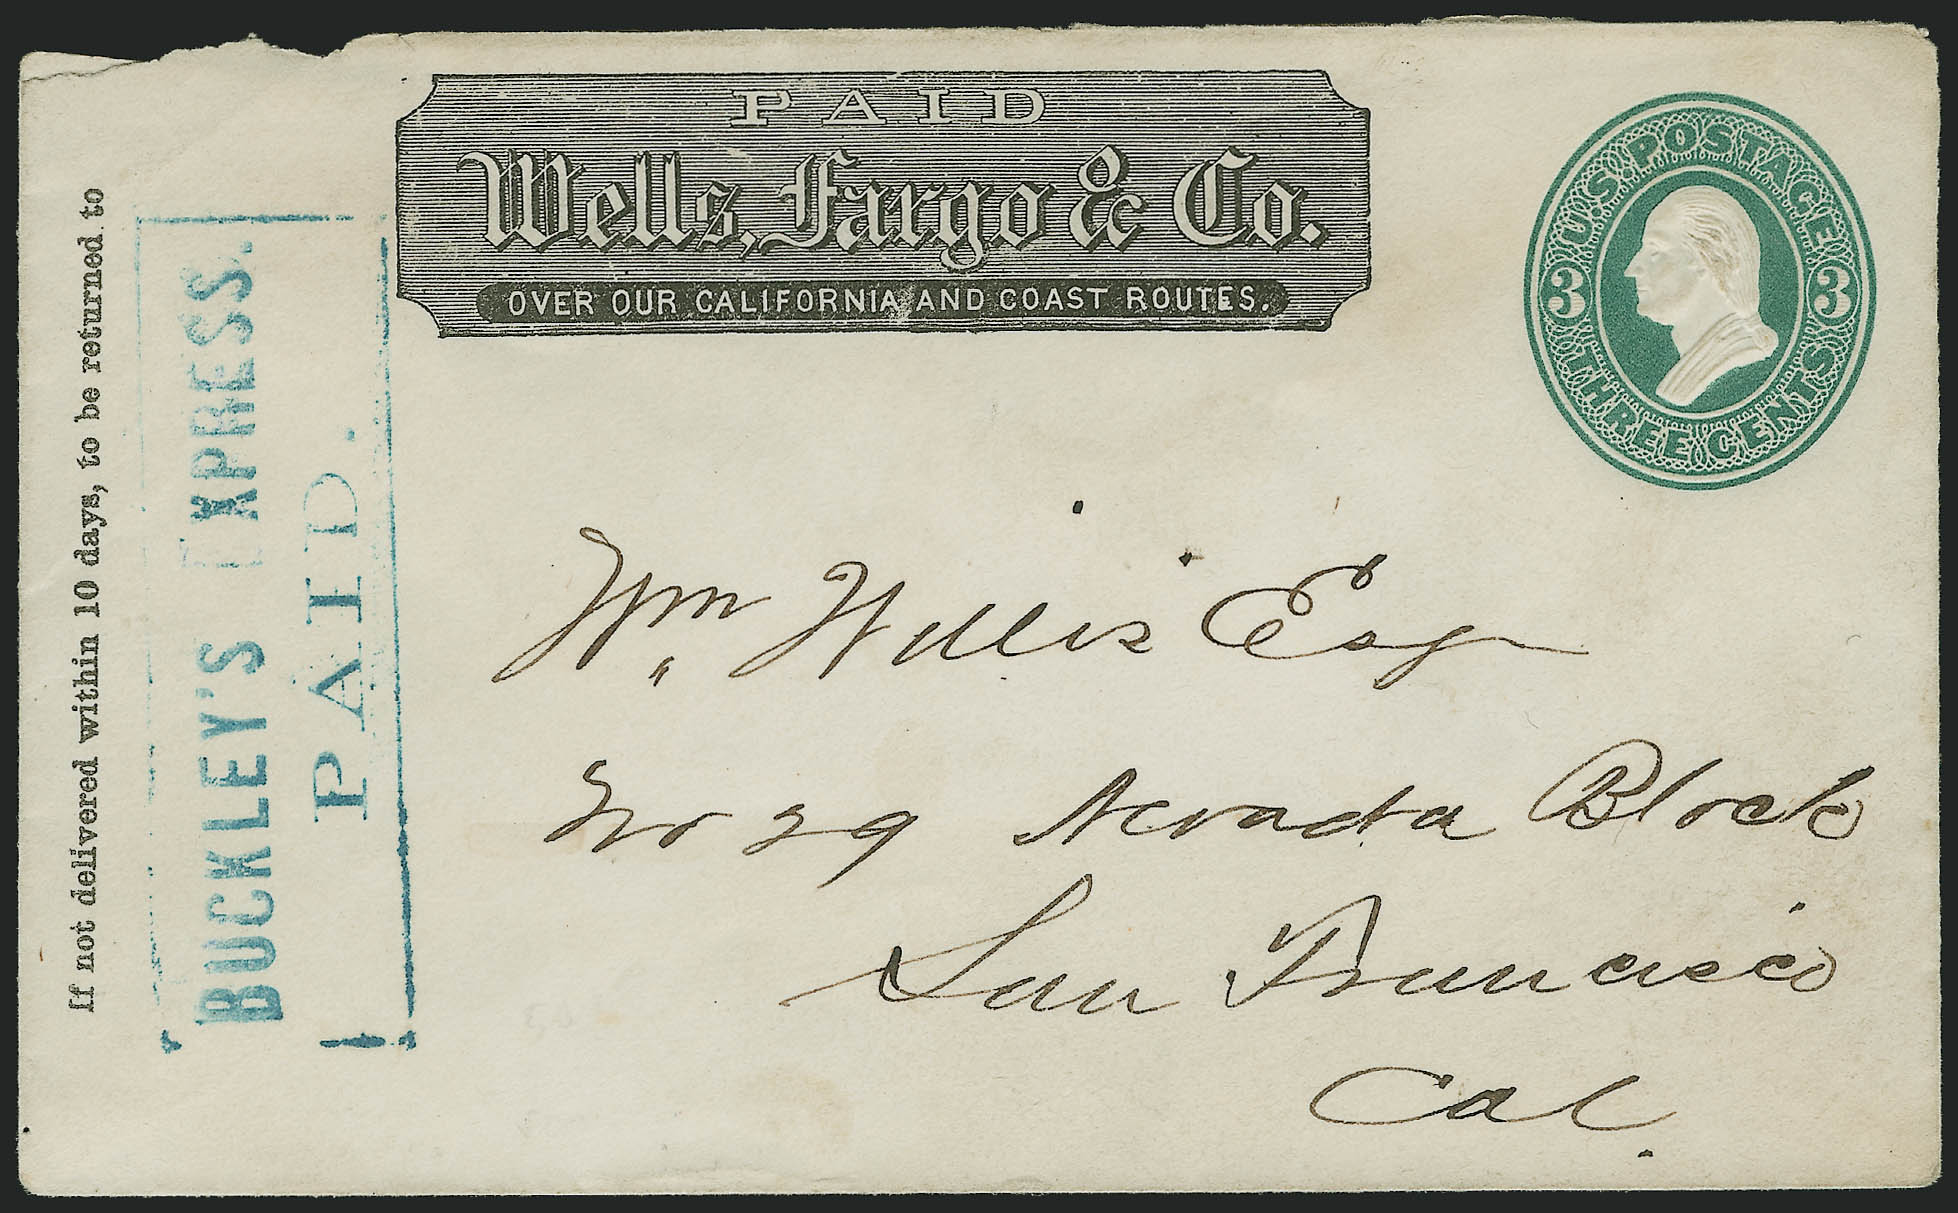 If not delivered within 10 days, to be returned to
BUCKLEY'S EXPRESS.
PAID.
PAID
Wells, Fargo & Co.
OVER OUR CALIFORNIA AND COAST ROUTES.
U.S. POSTAGE
3 3
THREE CENTS
Wm Willis Esq
No 29 Nevada Block
San Francisco
Cal.